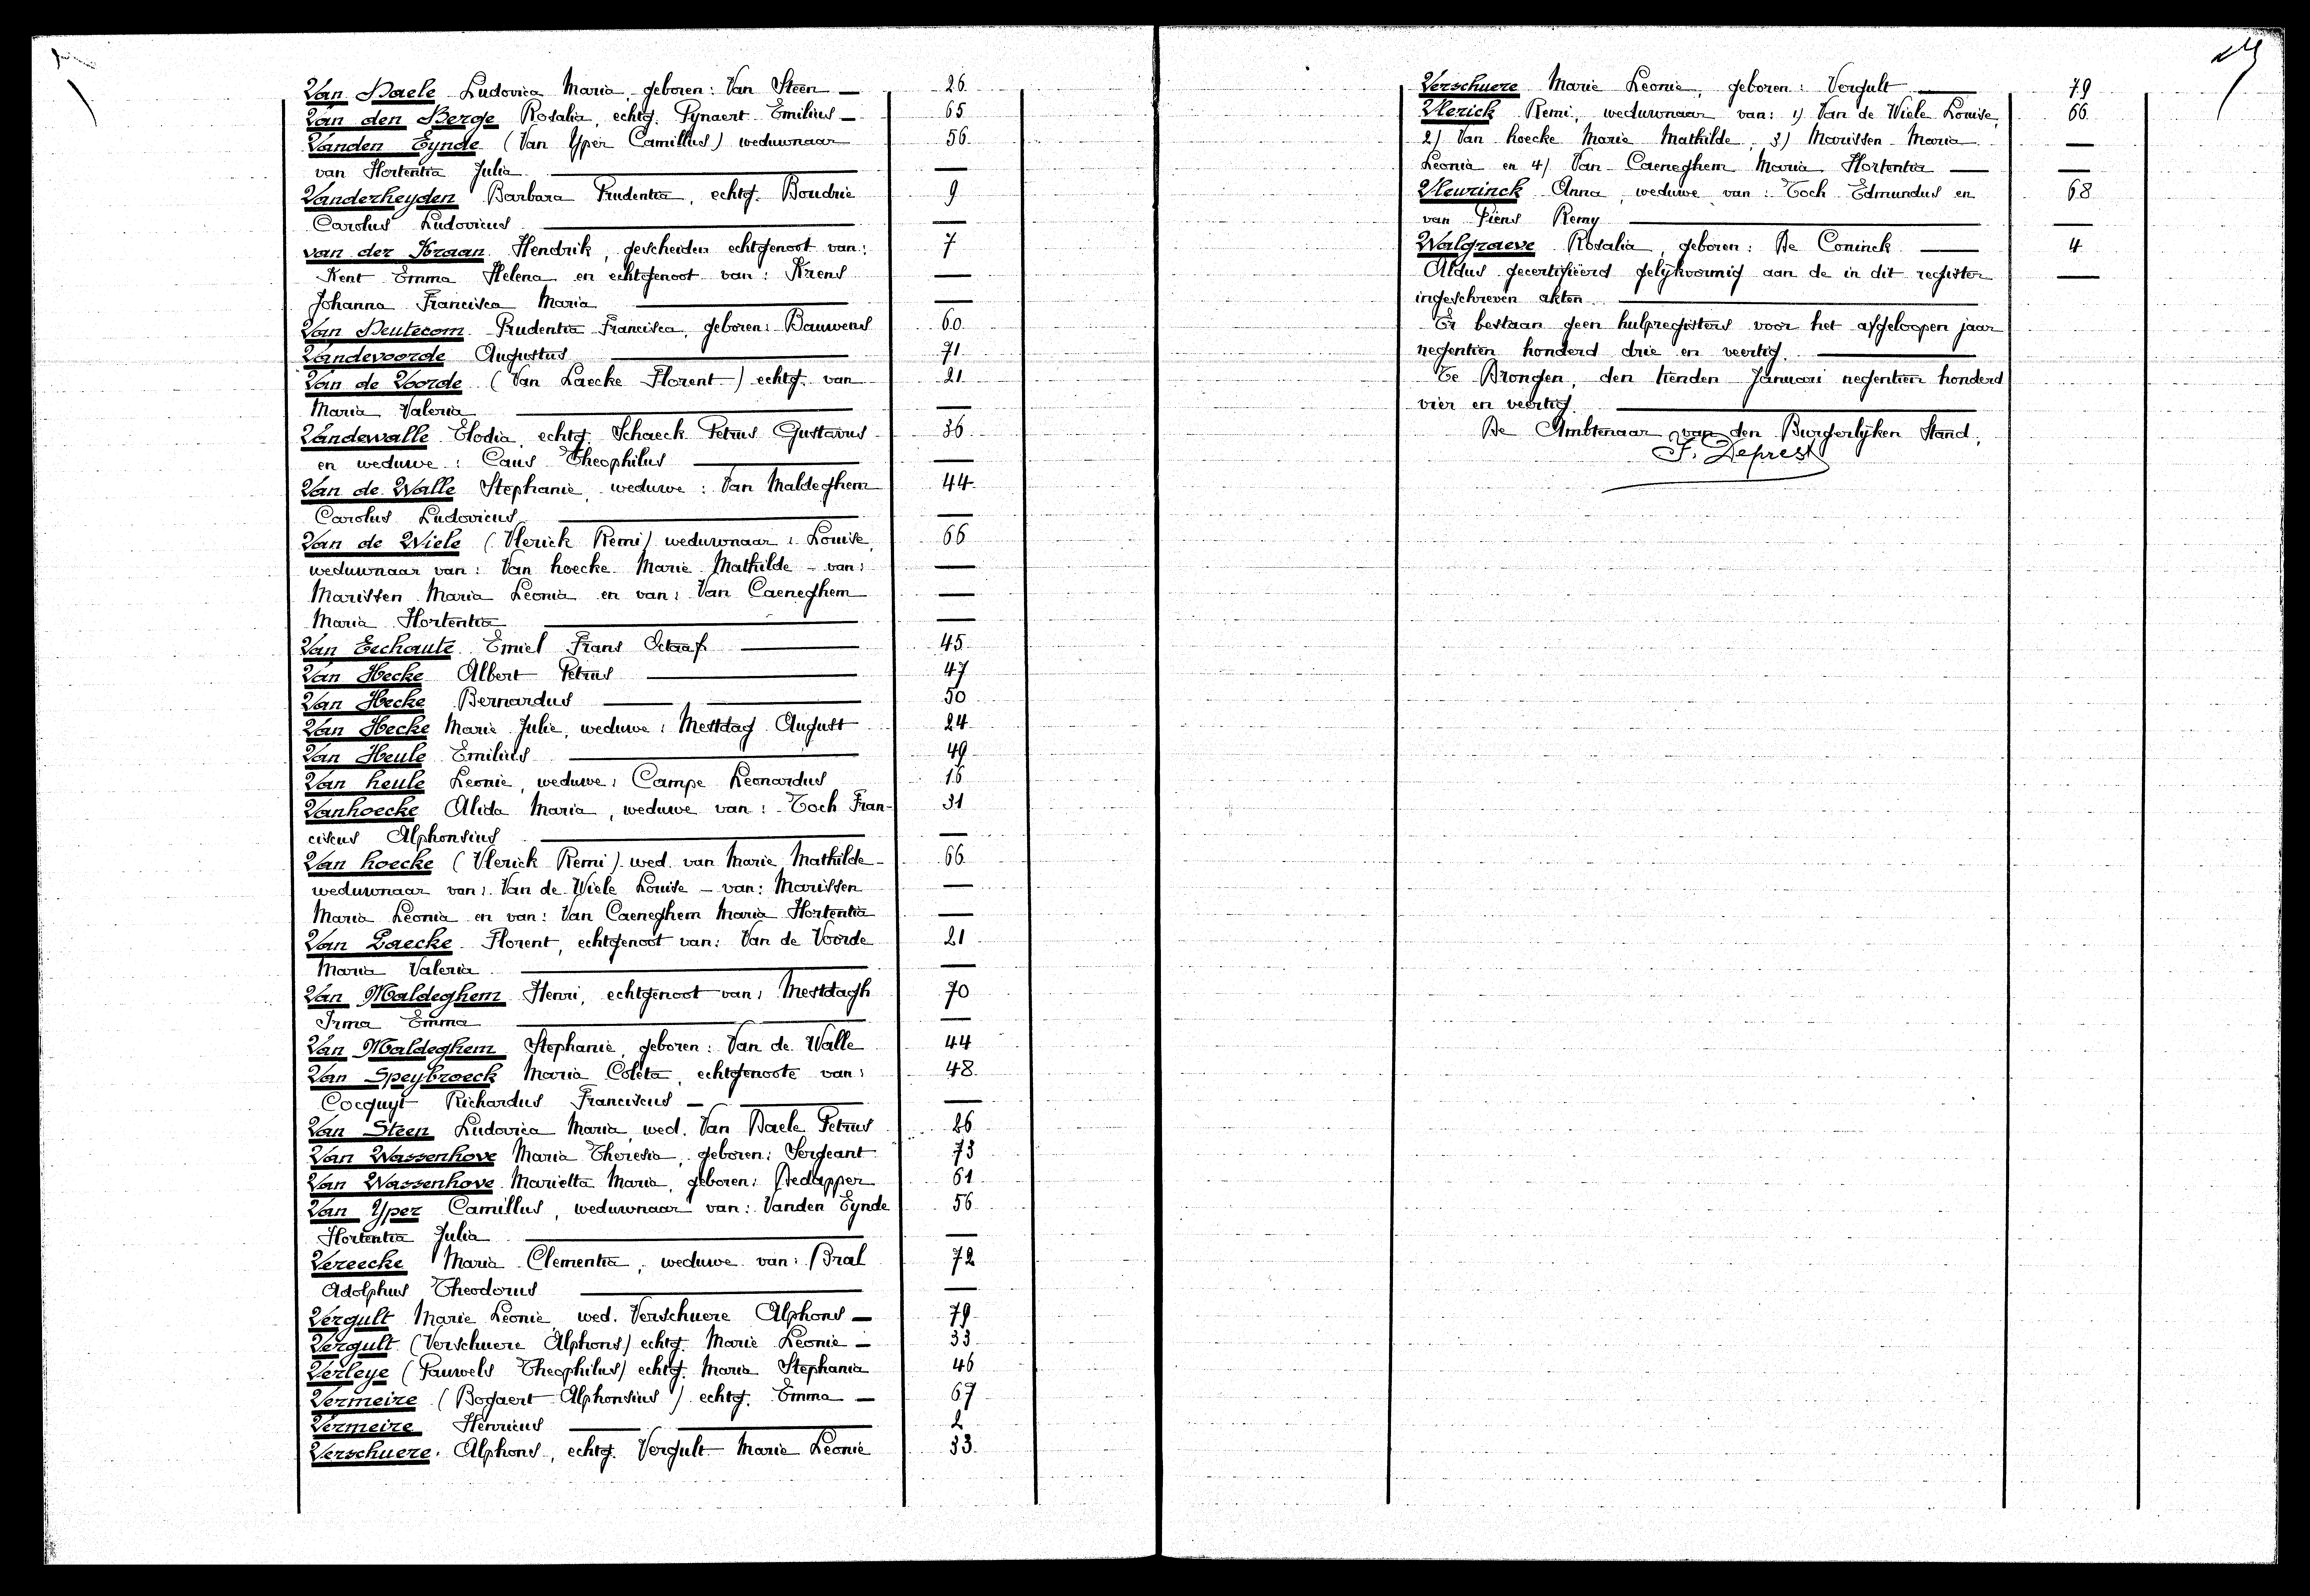 Van Daele Ludovica Maria, geboren: Van Steen — 26
Van den Berge Rosalia, echtg. Pynaert Emilius — 65
Vanden Eynde (Van Yper Camillus) weduwnaar 56
van Hortentia Julia —
Vanderheyden Barbara Prudentia, echtg. Boudrie 9
Carolus Ludovicus —
van der Kraan Hendrik, gescheiden echtgenoot van: 7
Kent Emma Helena en echtgenoot van: Krens —
Johanna Francisca Maria —
Van Deutecom Prudentia Francisca, geboren: Bauwens 60
Vandevoorde Augustus 71
Van de Voorde (Van Laecke Florent) echtg. van 21
Maria Valeria —
Vandewalle Elodia, echtg. Schaeck Petrus Gustavus 36
en weduwe: Caus Theophilus —
Van de Walle Stephanie, weduwe: Van Maldeghem 44
Carolus Ludovicus —
Van de Wiele (Vlerick Remi) weduwnaar: Louise, 66
weduwnaar van: Van hoecke Marie Mathilde - van: —
Marissen Maria Leonia en van: Van Caeneghem —
Maria Hortentia —
Van Eechaute Emiel Frans Octaaf 45
Van Hecke Albert Petrus 47
Van Hecke Bernardus 50
Van Hecke Marie Julie, weduwe: Mestdag August 24
Van Heule Emilius 49
Van heule Leonie, weduwe: Campe Leonardus 16
Vanhoecke Alida Maria, weduwe van: Toch Fran- 31
ciscus Alphonsius —
Van hoecke (Vlerick Remi) wed. van Marie Mathilde 66
weduwnaar van: Van de Wiele Louise - van: Marissen —
Maria Leonia en van: Van Caeneghem Maria Hortentia —
Van Laecke Florent, echtgenoot van: Van de Voorde 21
Maria Valeria —
Van Maldeghem Henri, echtgenoot van: Mestdagh 70
Irma Emma —
Van Maldeghem Stephanie, geboren: Van de Walle 44
Van Speybroeck Maria Coleta, echtgenoote van: 48
Cocquyt Richardus Franciscus —
Van Steen Ludovica Maria, wed. Van Daele Petrus 26
Van Wassenhove Maria Theresia, geboren: Sergeant 73
Van Wassenhove Marietta Maria, geboren: Dedapper 61
Van Yper Camillus, weduwnaar van: Vanden Eynde 56
Hortentia Julia —
Vereecke Maria Clementia, weduwe van: Bral 72
Adolphus Theodorus —
Vergult Marie Leonie, wed. Verschuere Alphons — 79
Vergult (Verschuere Alphons) echtg. Marie Leonie — 33
Verleye (Pauwels Theophilus) echtg. Maria Stephania 46
Vermeire (Bogaert Alphonsius) echtg. Emma — 67
Vermeire Henricus 2
Verschuere Alphons, echtg. Vergult Marie Leonie 33
Verschuere Marie Leonie, geboren: Vergult 79
Vlerick Remi, weduwnaar van: 1) Van de Wiele Louise, 66
2) Van hoecke Marie Mathilde, 3) Marissen Maria —
Leonia en 4) Van Caeneghem Maria Hortentia —
Vleurinck Anna, weduwe van: Toch Edmundus en 68
van Piens Remy —
Walgraeve Rosalia, geboren: De Coninck 4
Aldus gecertifiëerd gelijkvormig aan de in dit register —
ingeschreven akten.
Er bestaan geen hulpregisters voor het afgeloopen jaar
negentien honderd drie en veertig.
Te Drongen, den tienden Januari negentien honderd
vier en veertig.
De Ambtenaar van den Burgerlijken Stand,